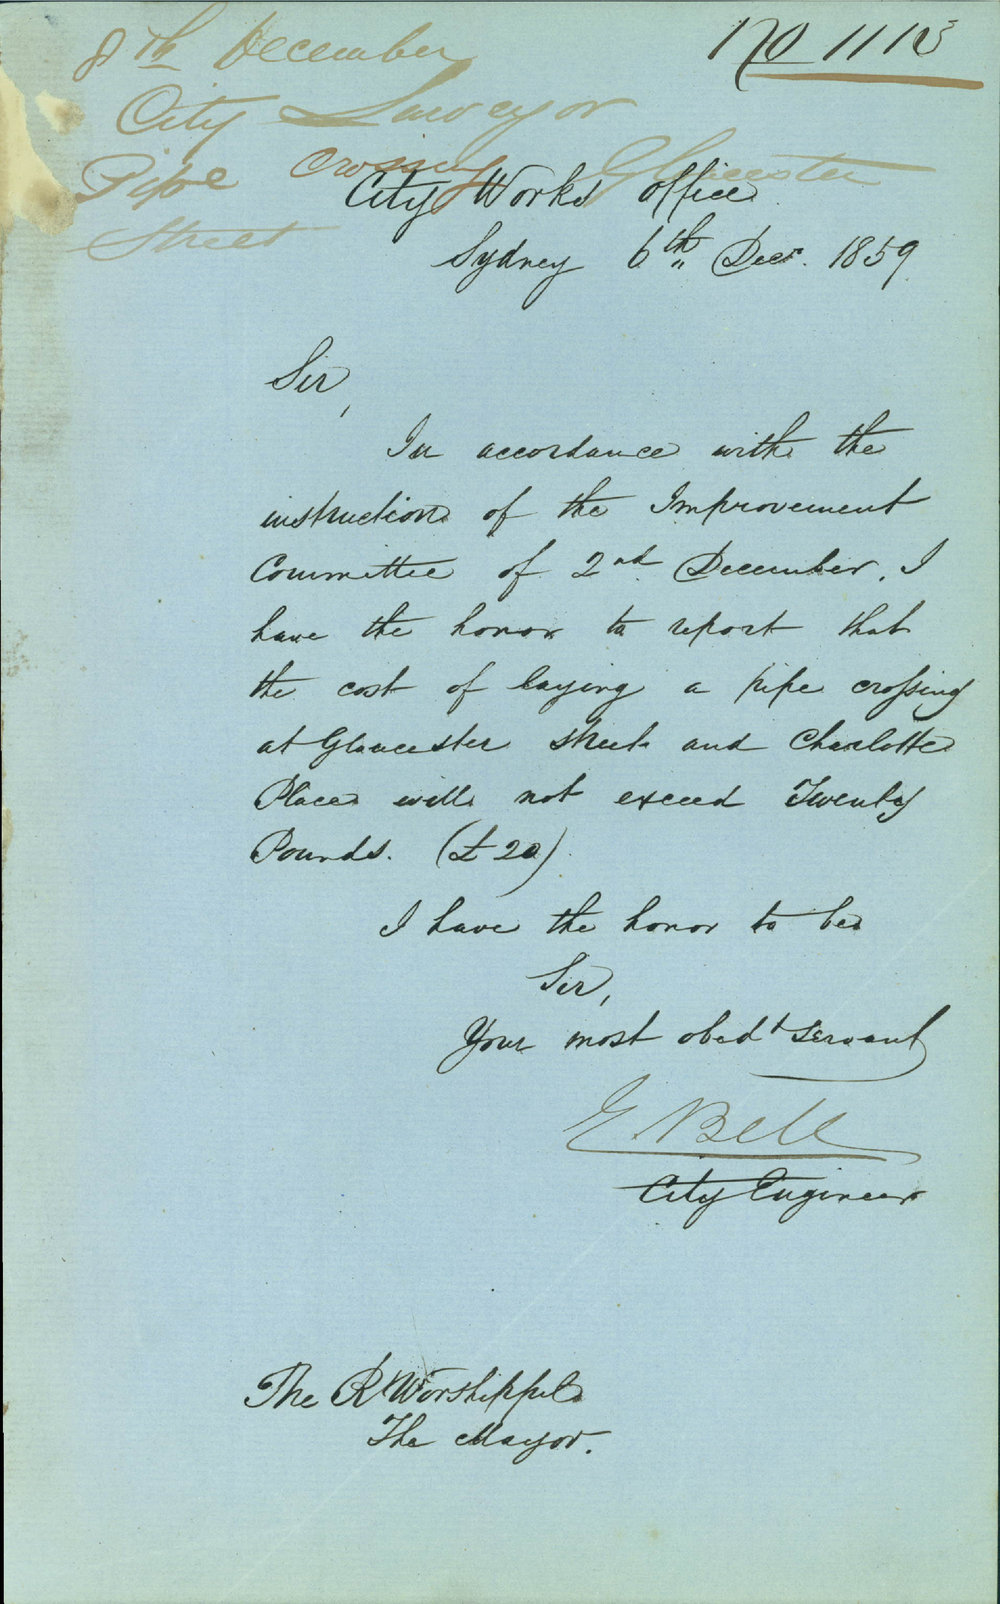 No 1113
8th December
City Surveyor
Pipe Crossing Gloucester
Street
City Works Office
Sydney 6th Decr. 1859
Sir,
In accordance with the
instruction of the Improvement
Committee of 2nd December, I
have the honor to report that
the cost of laying a pipe crossing
at Gloucester Street and Charlotte
Place will not exceed Twenty
Pounds. (£20)
I have the honor to be
Sir,
Your most obedt servant
E. Bell
City Engineer
The Rt Worshipful
The Mayor.